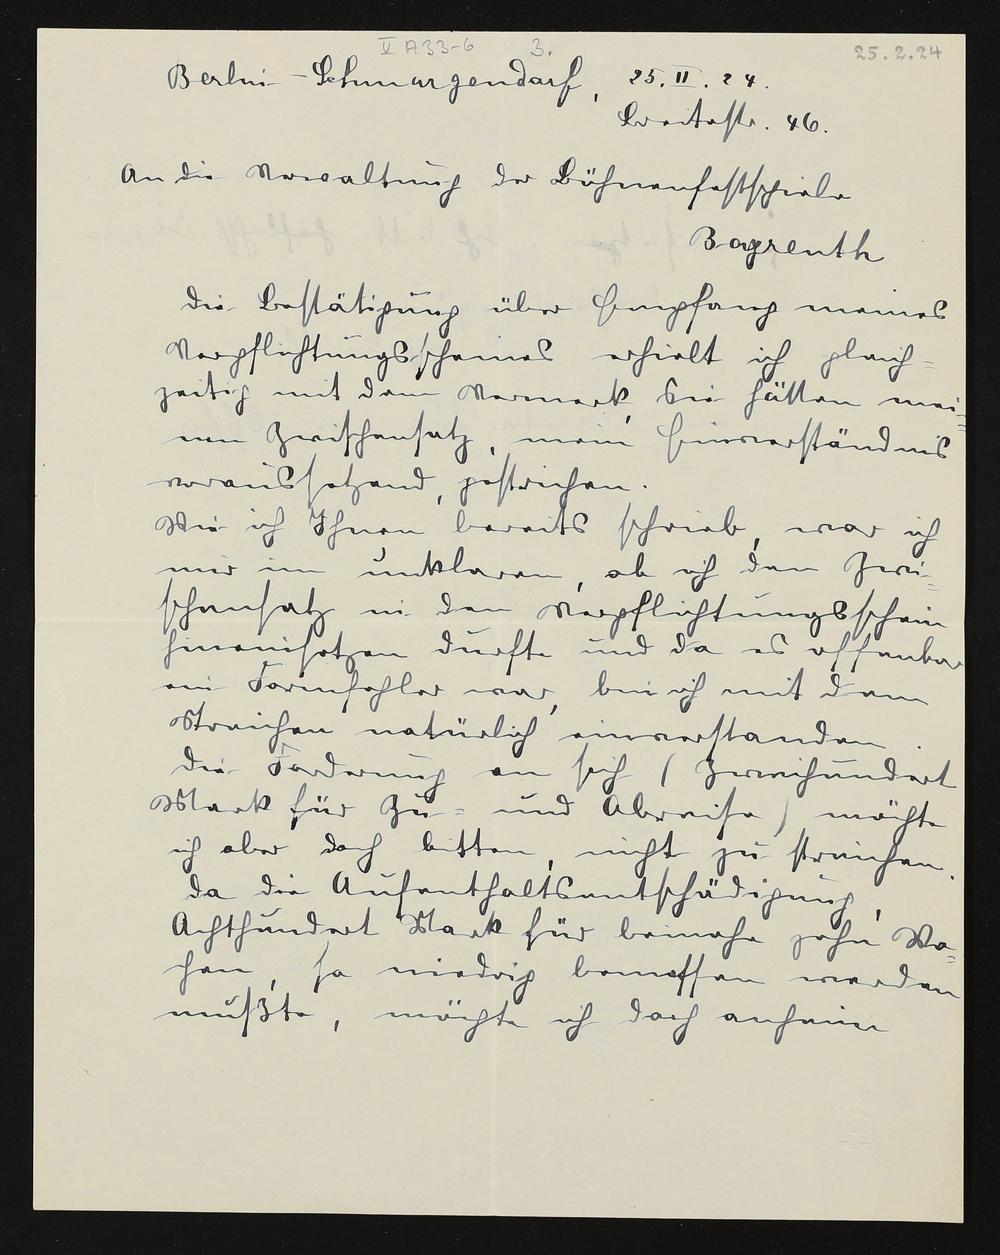 V A33-6 3. 25.2.24
Berlin-Schmargendorf, 25.II.24.
Breitestr. 46.
An die Verwaltung der Bühnenfestspiele
Bayreuth
Die Bestätigung über Empfang meines
Verpflichtungsscheines erhielt ich gleich=
zeitig mit dem Vermerk, Sie hätten mei=
nen Zwischensatz, mein Einverständnis
voraussetzend, gestrichen.
Wie ich Ihnen bereits schrieb, war ich
mir im unklaren, ob ich den Zwi=
schensatz in den Verpflichtungsschein
hineinsetzen durfte und da es offenbar
ein Formfehler war, bin ich mit dem
Streichen natürlich einverstanden.
Die Forderung an sich (Zweihundert
Mark für Zu= und Abreise) möchte
ich aber doch bitten, nicht zu streichen.
Da die Aufenthaltsentschädigung,
Achthundert Mark für beinahe zehn Wo=
chen, so niedrig bemessen werden
mußte, möchte ich doch anheim